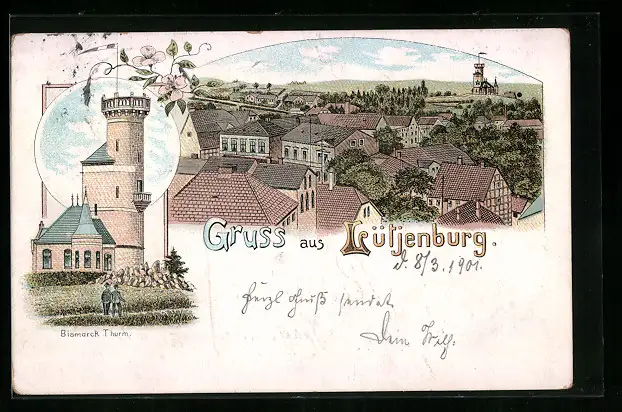 Gruss aus Lütjenburg.
d. 8/3. 1901.
Herzl. Gruß sendet
Dein Wilh.
Bismarck Thurm.